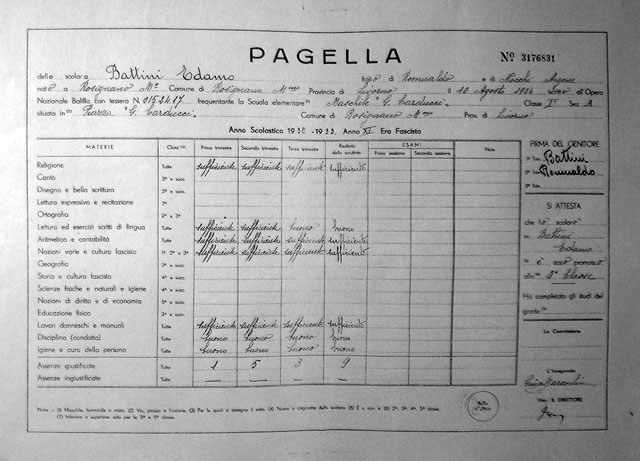 PAGELLA
Nº 3176831
dello scolaro Battini Edamo figlio di Romualdo e di Nocchi Argene
nato a Rosignano Mmo Comune di Rosignano Mmo Provincia di Livorno il 10 Agosto 1926 iscritto all'Opera
Nazionale Balilla con tessera N. 0152417 frequentante la Scuola elementare Maschile "G. Carducci" Classe Iª Sez. A
situata in Piazza "G. Carducci" Comune di Rosignano Mmo Prov. di Livorno
Anno Scolastico 1932 - 1933, Anno XI Era Fascista
MATERIE Classi (3) Primo trimestre Secondo trimestre Terzo trimestre Risultato dello scrutinio ESAMI Prima sessione Seconda sessione Note
Religione Tutte sufficiente sufficiente sufficiente sufficiente
Canto 3ª e succ.
Disegno e bella scrittura 3ª e succ.
Lettura espressiva e recitazione 3ª
Ortografia 2ª e 3ª
Lettura ed esercizi scritti di lingua Tutte sufficiente sufficiente buono buono
Aritmetica e contabilità Tutte sufficiente sufficiente sufficiente sufficiente
Nozioni varie e cultura fascista 1ª 2ª e 3ª sufficiente sufficiente sufficiente sufficiente
Geografia 3ª e succ.
Storia e cultura fascista 4ª e succ.
Scienze fisiche e naturali e igiene 4ª e succ.
Nozioni di diritto e di economia 5ª e succ.
Educazione fisica 3ª e succ.
Lavori donneschi e manuali Tutte sufficiente sufficiente sufficiente sufficiente
Disciplina (condotta) Tutte buono buono buono buona
Igiene e cura della persona Tutte buono buono buono buona
Assenze giustificate Tutte 1 5 3 9
Assenze ingiustificate Tutte — — — —
FIRMA DEL GENITORE
1º trim. Battini
2º trim. Romualdo
3º trim.
SI ATTESTA
che lo scolaro
Battini
Edamo
è stato promosso
alla 2ª Classe
Ha completato gli studi del
grado
La Commissione
L'Insegnante
Visto: IL DIRETTORE
Note - (1) Maschile, femminile o mista. (2) Via, piazza o frazione. (3) Per le quali si assegna il voto. (4) Nome e cognome dello scolaro. (5) È o non è. (6) 2ª, 3ª, 4ª, 5ª classe.
(7) Inferiore o superiore, solo per la 3ª e 5ª classe.